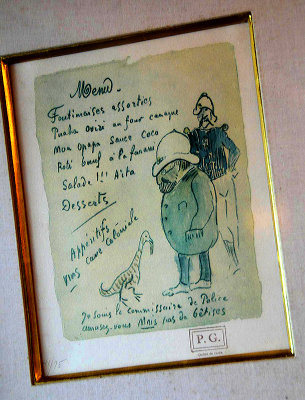 Menu.
Foutimaises assorties
Puaha Oviri au four canaque
Mon opapa sauce Coco
Roti boeuf à la farani
Salade !!! Aita
Desserts
Appéritifs
Vins cave Coloniale
Je suis le Commissaire de Police
amusez-vous Mais pas de bêtises
P. G.